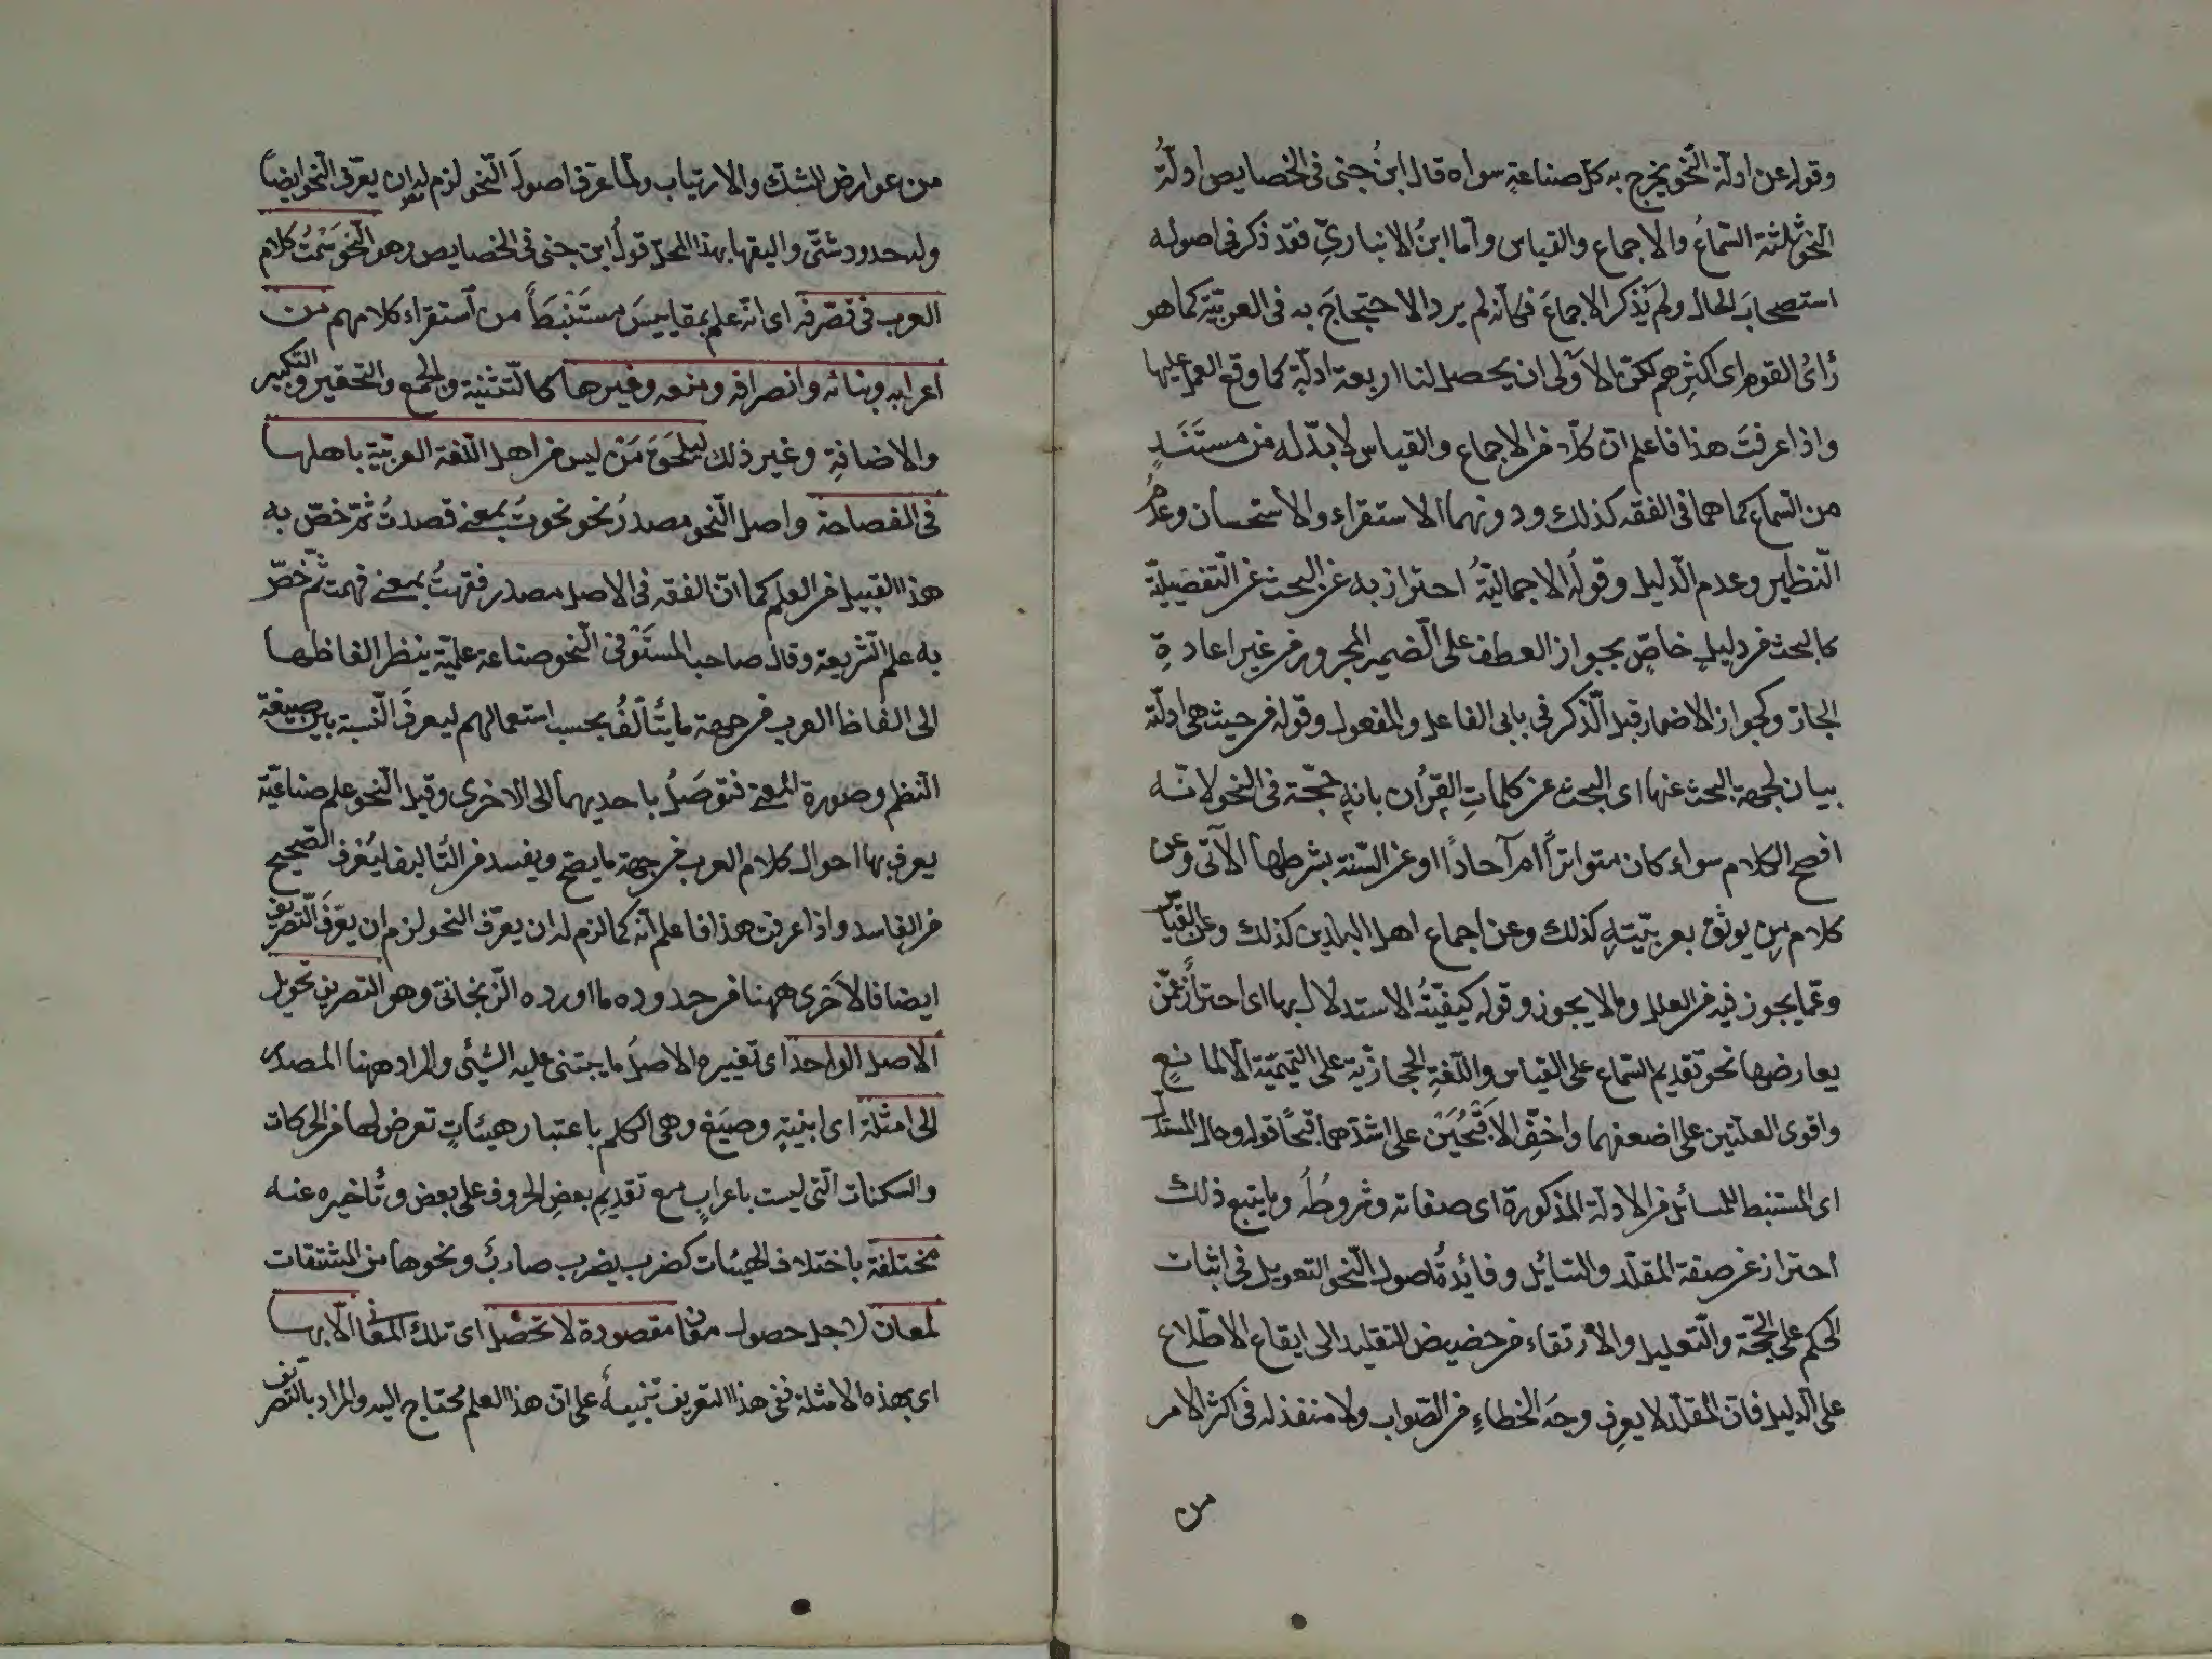 وقوله عن ادلة النحو يخرج به كل صناعة سواه قال ابنُ جنى فى الخصايص ادلّةُ
النحو ثلثة السّماعُ والاجماع والقياس وامّا ابنُ الانبارىّ فقد ذكر فى اصوله
استصحابَ الحال ولم يَذكر الاجماعَ فكانّه لم ير الاحتجاجَ به فى العربيّة كما هو
رأىُ القوم اى اكثرِهم لكنّ الاَولى ان يحصل لنا اربعة ادلّةٍ كما وقع العمل عليها
واذا عرفتَ هذا فاعلم انّ كلّا من الاجماع والقياس لا بدّ له من مستَنَدٍ
من السّماع كما هما فى الفقه كذلك ودونهما الاستقراء والاستحسان وعدمُ
النّظير وعدم الدّليل وقوله الاجماليّةُ احتراز به عن البحث عن التّفصيليّة
كالبحث فى دليلٍ خاصٍّ بجواز العطف على الضمير المجرور من غير اعادةِ
الجارّ وكجواز الاضمار قبل الذّكر فى بابى الفاعل والمفعول وقوله من حيث هى ادلّة
بيان لجهة البحث عنها اى البحث عن كلماتِ القرآن بانهِ حجّة فى النحو لانّه
افصح الكلام سواء كان متواتراً ام آحاداً او عن السّنة بشرطها الآتى وعن
كلام من يوثق بعربيّتهِ كذلك وعن اجماع اهل البلدين كذلك وعن القياس
وعمّا يجوز فيه من العلل وما لا يجوز وقوله كيفيّةُ الاستدلال بها اى احترازٌ عمّن
يعارضها نحو تقديم السّماع على القياس واللّغةِ الحجازيّة على التميميّة الّا لمانعٍ
واقوى العلّتين على اضعفهما واخفّ الاَقْبحَيْن على اشدّهما قبحًا قوله وحال المستدل
اى المستنبط للمسائل من الادلّة المذكورة اى صفاته وشروطُه وما يتبع ذلك
احتراز عن صفة المقلّد والسّائل وفائدةُ اصول النّحو التعويل فى اثبات
الحكم على الحجّة والتّعليل والارتقاء من حضيض التقليد الى ايقاع الاطّلاع
على الدليل فانّ المقلّد لا يعرف وجهَ الخطاءِ من الصّواب ولا منفذ له فى اكثر الامر
من
من عوارض الشكّ والارتياب ولمّا عرّف اصولَ النّحو لزم له ان يعرّف النحو ايضاً
وله حدود شتّى واليقها بهذا المحلّ قولُ ابن جنى فى الخصايص وهو النّحو سَمْتُ كلام
العرب فى تصرّفه اى انّه علم بمقاييسَ مستَنْبطَةٍ من استقراء كلامهم من
اعرابه وبنائه وانصرافه ومنعه وغيرها كالتّثنية والجمع والتحقير والتكسير
والاضافةِ وغير ذلك ليلحَقَ مَنْ ليس من اهل اللّغة العربيّة باهلها
فى الفصاحة واصل النّحو مصدرُ نحو نحوتُ بمعنى قصدتُ ثمّ خصّ به
هذا القبيل من العلم كما انّ الفقه فى الاصل مصدر فقهتُ بمعنى فهمت ثمّ خصّ
به علم الشّريعة وقال صاحب المستَوْفى النّحو صناعة علميّة ينظر الفاظها
الى الفاظ العرب من جهة ما يتألّفُ بحسب استعمالهم ليعرفَ النّسبة بين صيغة
النّظم وصورة المعنى فتوصَلُ باحديهما الى الاخرى وقيل النّحو علم صناعيّة
يعرف بها احوال كلام العرب من جهة ما يصحّ ويفسد من التّاليف ليُعرف الصّحيح
من الفاسد واذا عرفت هذا فاعلم انّه كما لزم له ان يعرّف النحو لزم ان يعرّفَ التّصريف
ايضا فالاَحرى ههنا من حدوده ما اورده الزّنجانىّ وهو التصريف تحويل
الاصل الواحد اى تغييره الاصلُ ما يبتنى عليه الشيْئ والمراد ههنا المصدر
الى امثلة اى ابنيةٍ وصيَغ وهى الكلم باعتبار هيئاتٍ تعرض لها من الحركات
والسّكنات الّتى ليست باعرابٍ مع تقديمِ بعضِ الحروف على بعض وتأخيره عنه
مختلفة باختلاف الهيئات كضرب يضرب ضاربٌ ونحوها من المشتقات
لمعان لاجل حصول معانٍ مقصودة لا تحصل اى تلك المعانى الّا بها
اى بهذه الامثلة ففى هذا التعريف تنبيهٌ على انّ هذا العلم محتاج اليه والمراد بالتصريف